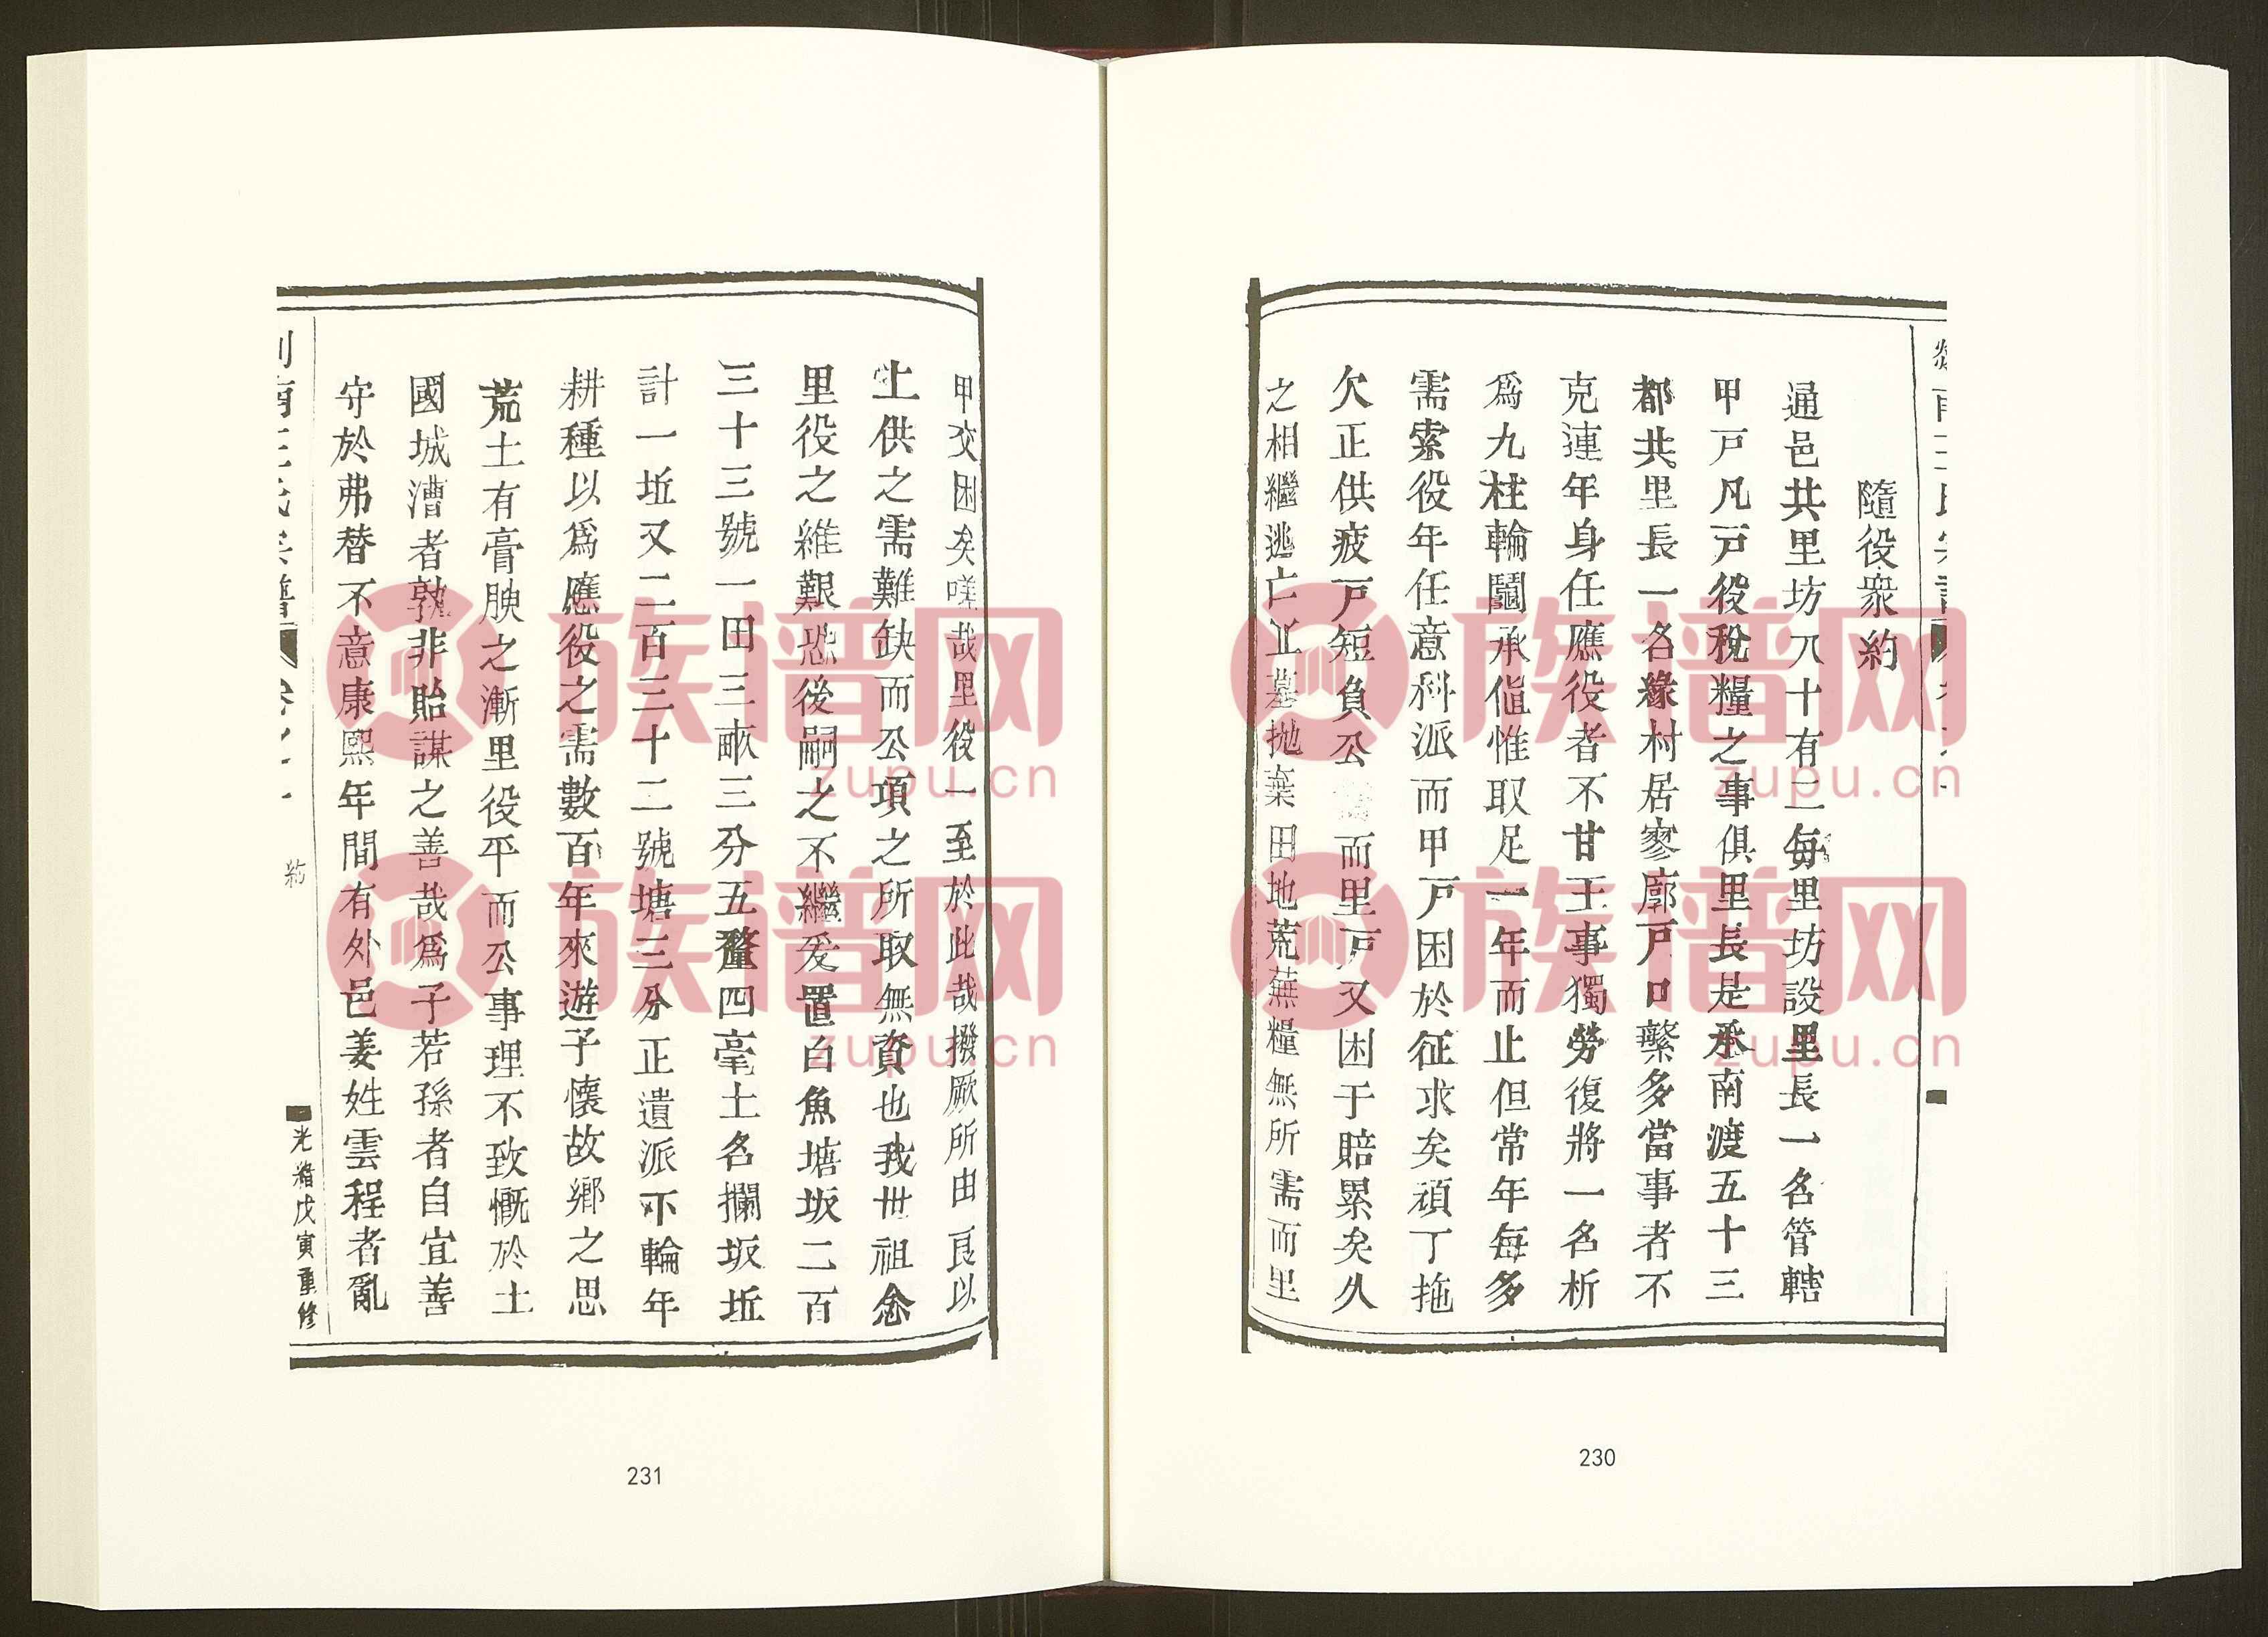 隨役衆約
通邑共里坊八十有二每里坊設里長一名管轄
甲戸凡戸役稅糧之事俱里長是承南渡五十三
都共里長一名緣村居寥廓戸口繁多當事者不
克連年身任應役者不甘王事獨勞復將一名析
爲九柱輪鬮承値惟取足一年而止但常年每多
需索役年任意科派而甲戸困於征求矣頑丁拖
欠正供疲戸短負公 而里戸又困于賠累矣久
之相繼逃亡丘墓抛棄田地荒蕪糧無所需而里
230
甲交困矣嗟哉里役一至於此哉撥厥所由良以
上供之需難缺而公項之所取無資也我世祖念
里役之維艱恐後嗣之不繼爰置白魚塘坂二百
三十三號一田三畝三分五釐四毫土名攔坂坵
計一坵又二百三十二號塘三分正遺派下輪年
耕種以爲應役之需數百年來遊子懷故鄉之思
荒土有膏腴之漸里役平而公事理不致慨於土
國城漕者孰非貽謀之善哉爲子若孫者自宜善
守於弗替不意康熙年間有外邑姜姓雲程者亂
約
光緒戊寅重修
231
族谱网
zupu.cn
族谱网
zupu.cn
族谱网
zupu.cn
族谱网
zupu.cn